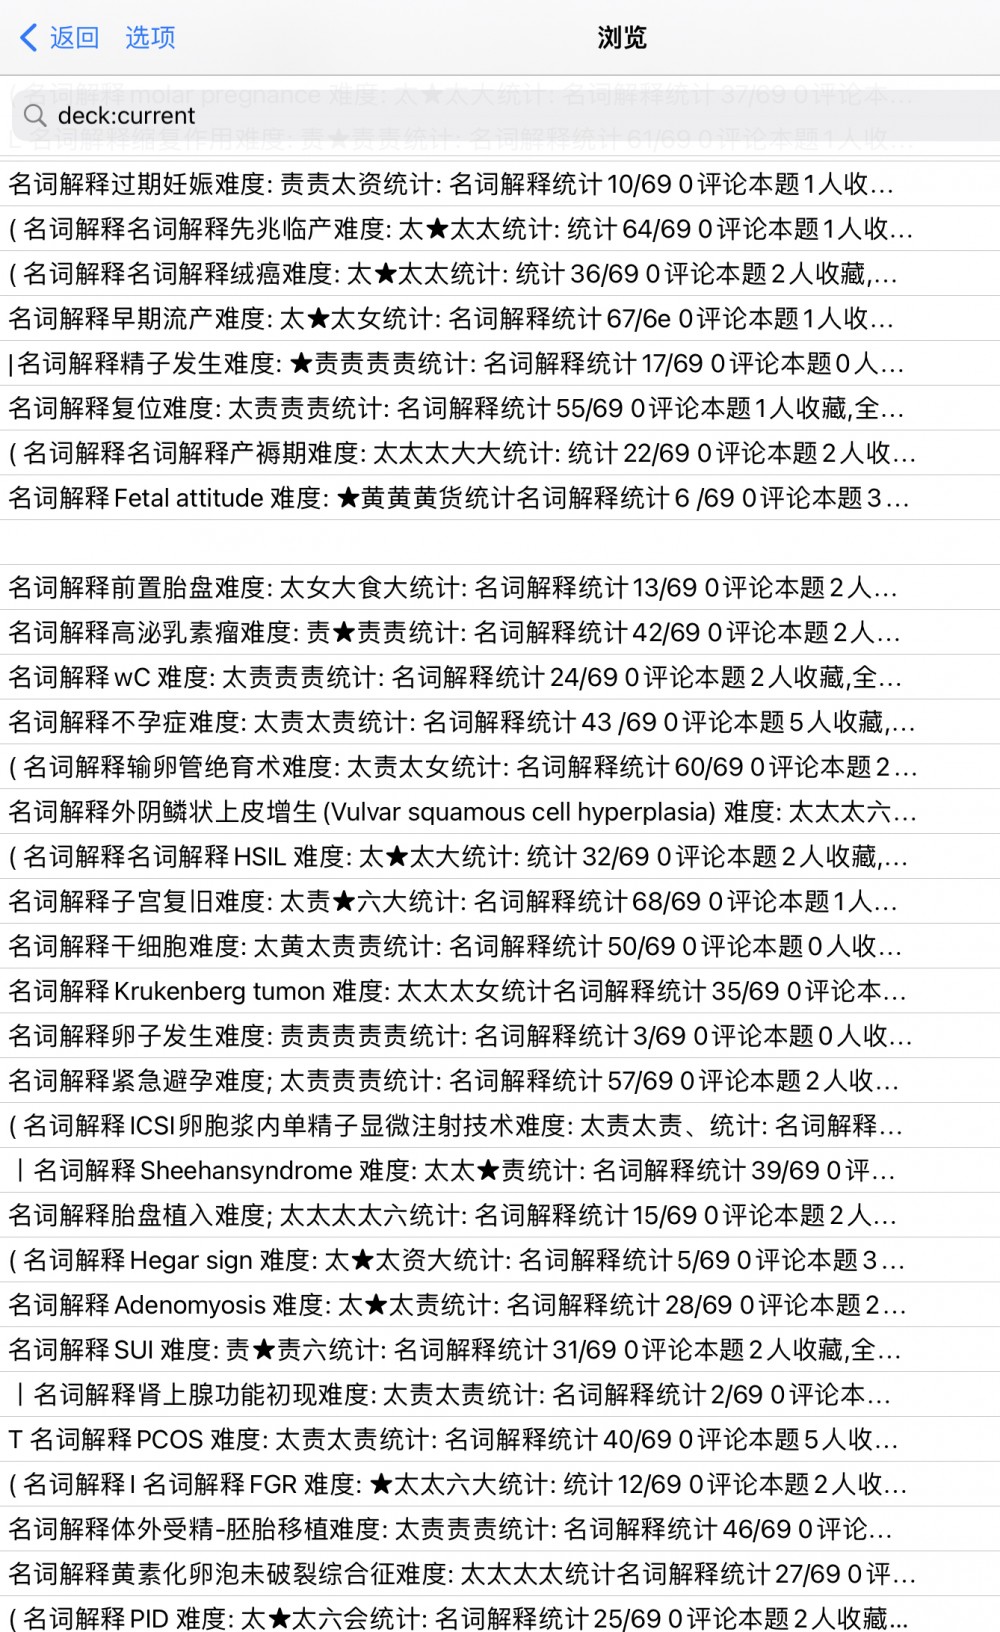 返回 选项 浏览
(名词解释molar pregnance 难度: 太★太大统计: 名词解释统计 37/69 0评论本...
deck:current
名词解释缩复作用难度: 责★责责统计: 名词解释统计 61/69 0评论本题1人收...
名词解释过期妊娠难度: 责责太资统计: 名词解释统计10/69 0评论本题1人收...
(名词解释名词解释先兆临产难度: 太★太太统计: 统计64/69 0评论本题1人收...
(名词解释名词解释绒癌难度: 太★太太统计: 统计36/69 0评论本题2人收藏,...
名词解释早期流产难度: 太★太女统计: 名词解释统计67/6e 0评论本题1人收...
|名词解释精子发生难度: ★责责责责统计: 名词解释统计17/69 0评论本题0人...
名词解释复位难度: 太责责责统计: 名词解释统计55/69 0评论本题1人收藏,全...
(名词解释名词解释产褥期难度: 太太太大大统计: 统计22/69 0评论本题2人收...
名词解释Fetal attitude 难度: ★黄黄黄货统计名词解释统计6 /69 0评论本题3...
名词解释前置胎盘难度: 太女大食大统计: 名词解释统计13/69 0评论本题2人...
名词解释高泌乳素瘤难度: 责★责责统计: 名词解释统计42/69 0评论本题2人...
名词解释wC 难度: 太责责责统计: 名词解释统计24/69 0评论本题2人收藏,全...
名词解释不孕症难度: 太责太责统计: 名词解释统计43 /69 0评论本题5人收藏,...
(名词解释输卵管绝育术难度: 太责太女统计: 名词解释统计60/69 0评论本题2...
名词解释外阴鳞状上皮增生(Vulvar squamous cell hyperplasia) 难度: 太太太六...
(名词解释名词解释HSIL 难度: 太★太大统计: 统计32/69 0评论本题2人收藏,...
名词解释子宫复旧难度: 太责★六大统计: 名词解释统计68/69 0评论本题1人...
名词解释干细胞难度: 太黄太责责统计: 名词解释统计50/69 0评论本题0人收...
名词解释Krukenberg tumon 难度: 太太太女统计名词解释统计35/69 0评论本...
名词解释卵子发生难度: 责责责责责统计: 名词解释统计3/69 0评论本题0人收...
名词解释紧急避孕难度; 太责责责统计: 名词解释统计57/69 0评论本题2人收...
(名词解释ICSI卵胞浆内单精子显微注射技术难度: 太责太责、统计: 名词解释...
丨名词解释Sheehansyndrome 难度: 太太★责统计: 名词解释统计39/69 0评...
名词解释胎盘植入难度; 太太太太六统计: 名词解释统计15/69 0评论本题2人...
(名词解释Hegar sign 难度: 太★太资大统计: 名词解释统计5/69 0评论本题3...
名词解释Adenomyosis 难度: 太★太责统计: 名词解释统计28/69 0评论本题2...
名词解释SUI 难度: 责★责六统计: 名词解释统计31/69 0评论本题2人收藏,全...
丨名词解释肾上腺功能初现难度: 太责太责统计: 名词解释统计2/69 0评论本...
T 名词解释PCOS 难度: 太责太责统计: 名词解释统计40/69 0评论本题5人收...
(名词解释I 名词解释FGR 难度: ★太太六大统计: 统计12/69 0评论本题2人收...
名词解释体外受精-胚胎移植难度: 太责责责统计: 名词解释统计46/69 0评论...
名词解释黄素化卵泡未破裂综合征难度: 太太太太统计名词解释统计27/69 0评...
(名词解释PID 难度: 太★太六会统计: 名词解释统计25/69 0评论本题2人收藏...